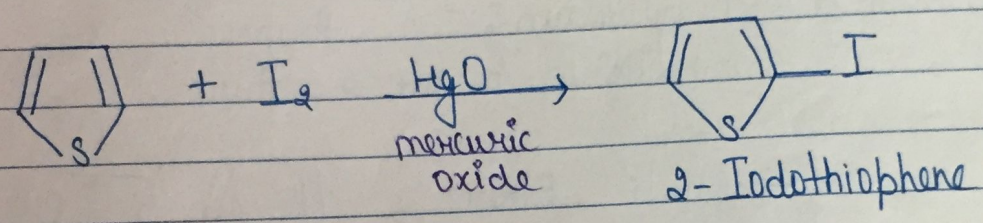 + I2 HgO I
mercuric
oxide
S S
2-Iodothiophene